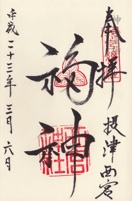 奉拝
摂津西宮
福神
平成二十三年三月六日